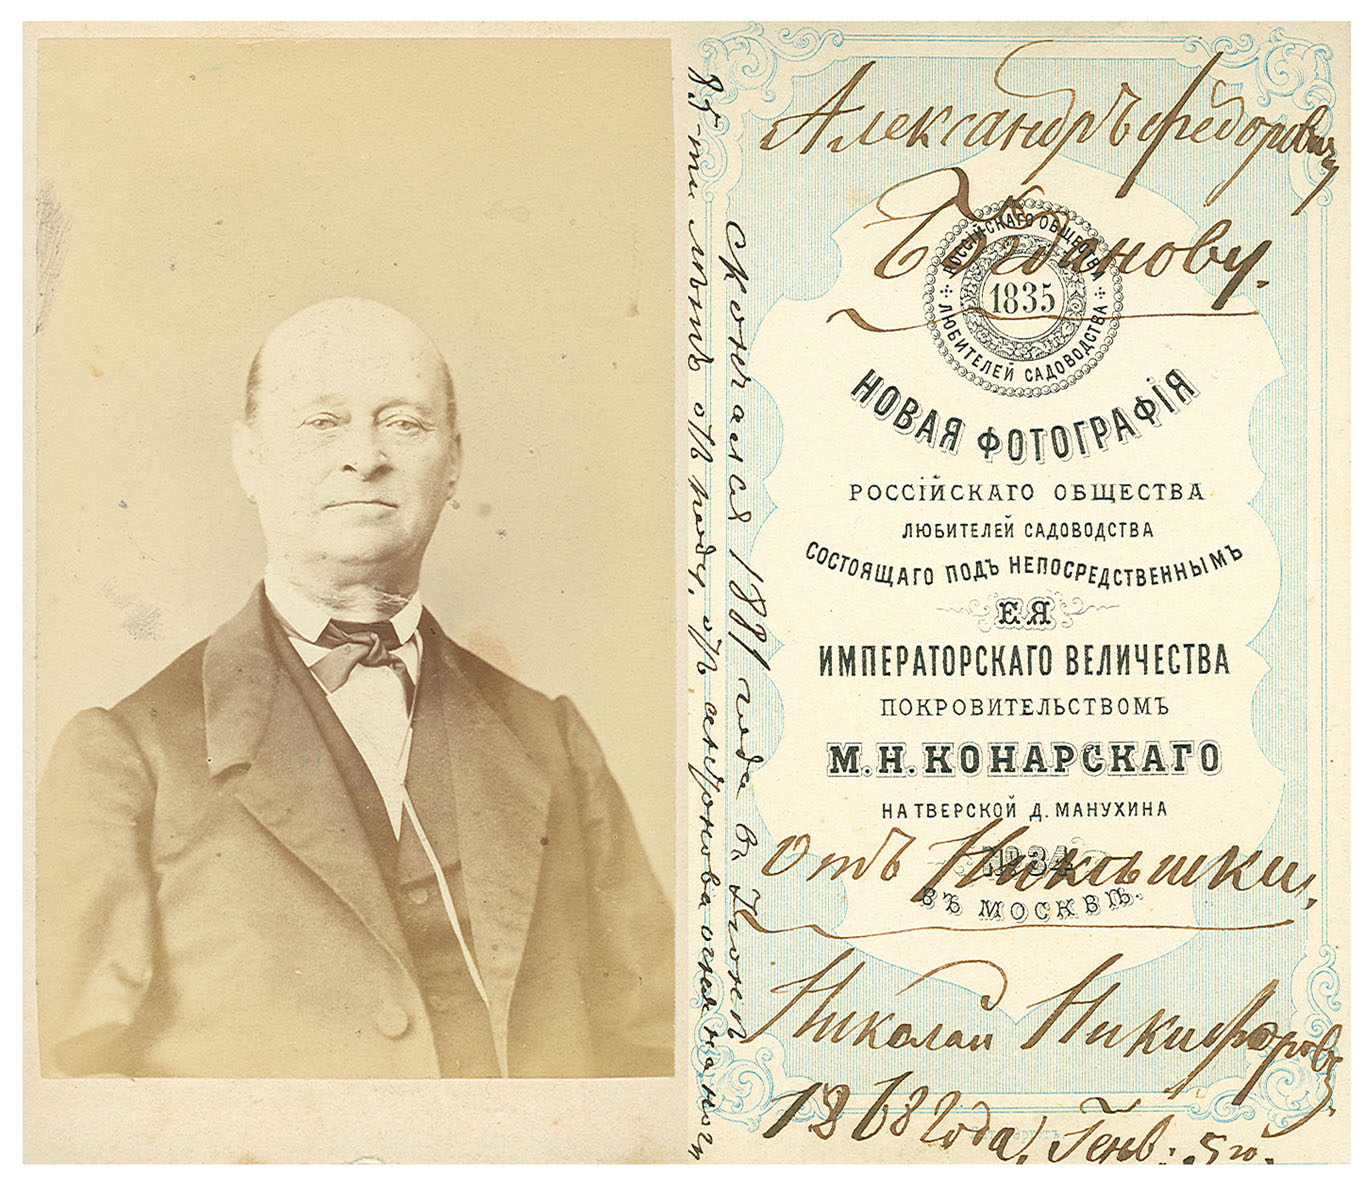 Александръ Ѳедоровичу
Богданову.
РОССІЙСКАГО ОБЩЕСТВА
1835
ЛЮБИТЕЛЕЙ САДОВОДСТВА
НОВАЯ ФОТОГРАФІЯ
РОССІЙСКАГО ОБЩЕСТВА
ЛЮБИТЕЛЕЙ САДОВОДСТВА
СОСТОЯЩАГО ПОДЪ НЕПОСРЕДСТВЕННЫМЪ
ЕЯ
ИМПЕРАТОРСКАГО ВЕЛИЧЕСТВА
ПОКРОВИТЕЛЬСТВОМЪ
М.Н.КОНАРСКАГО
НА ТВЕРСКОЙ Д. МАНУХИНА
отъ
ВЪ МОСКВѢ.
Николай Никифоровъ
1868 года, Генв: 5го.
скончался 1881 года въ Июнѣ
85-ти лѣтъ отъ роду, отъ антонова огня на ноги